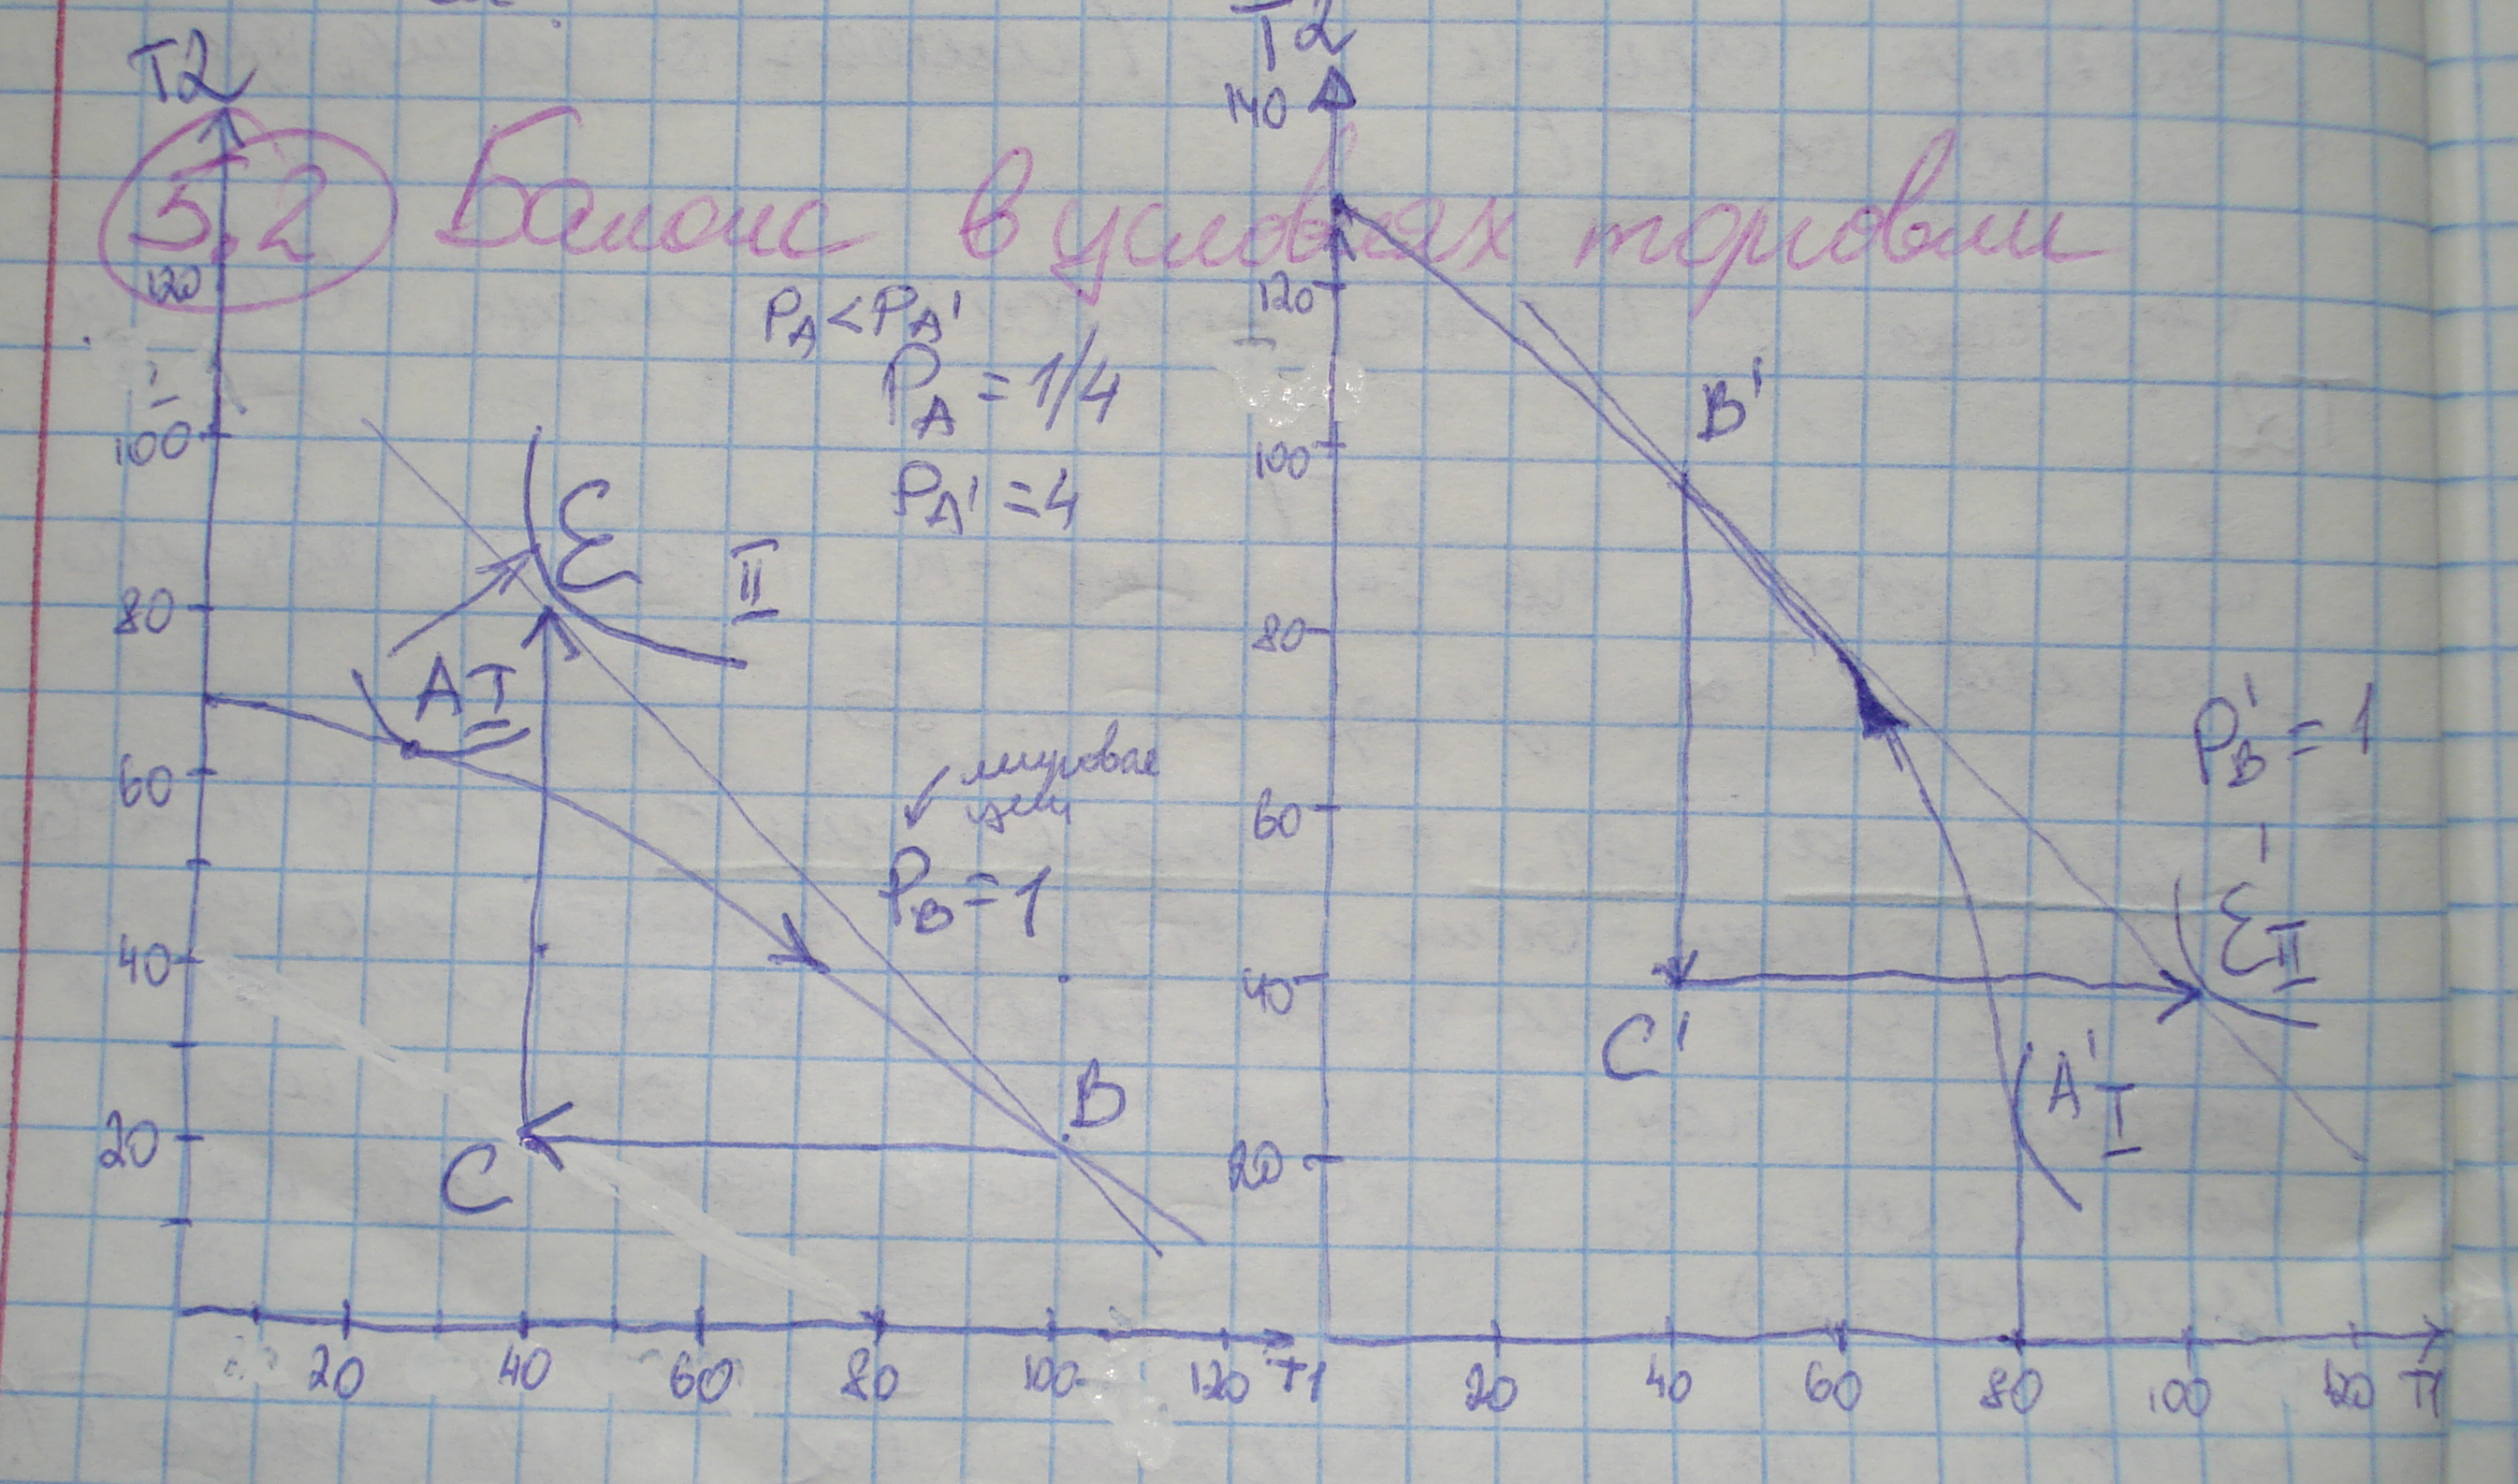 T2
T2
140
5.2 Баланс в условиях торговли
120
120
P_A < P_A'
P_A = 1/4
P_A' = 4
100
100
B'
E
II
80
80
A I
P_B' = 1
60
60
мировая
цена
P_B = 1
E'
II
40
40
C'
A'
I
B
20
20
C
20 40 60 80 100 120 T1
20 40 60 80 100 120 T1